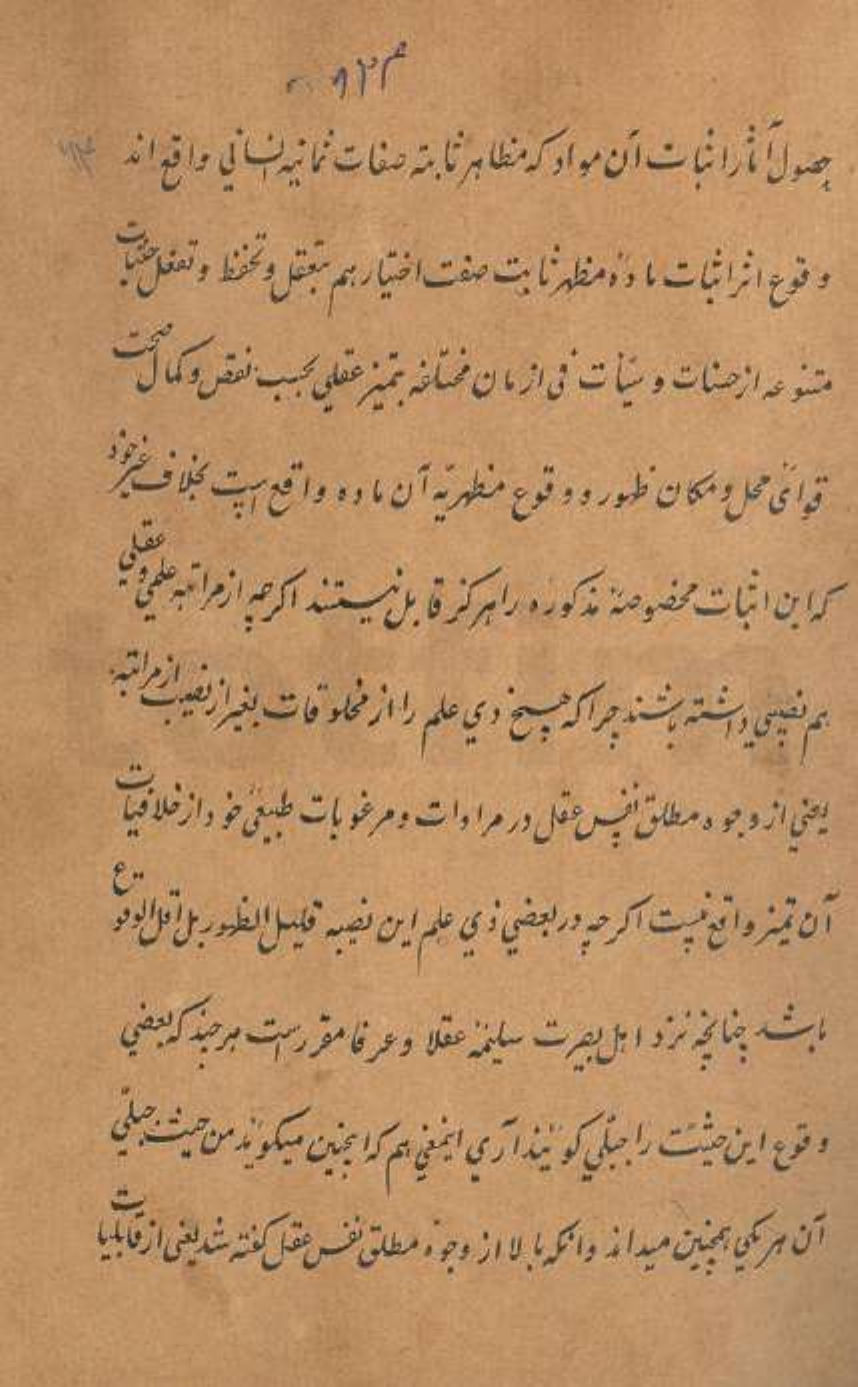 حصول آثار اثبات آن مواد که مظاهر ثابته صفات ثمانیه انسانی واقع اند
وقوع اثر اثبات ماده مظهر ثابت صفت اختیار هم بتعقل و تحفظ و تفعل حثیات
متنوعه از حسنات و سیٔات فی ازمان مختلفه بتمیز عقلی بحسب نقص و کمال صحت
قوائ محل و مکان ظهور و وقوع مظهریّه آن ماده واقع است بخلاف غیر خود
که این اثبات مخصوصهٔ مذکوره را هرکز قابل نیستند اکرچه از مراتبه علمی و عقلی
هم نصیبی داشته باشند چرا که هیچ ذی علم را از مخلوقات بغیر از نصیب از مراتبه
یعنی از وجوه مطلق نفس عقل در مرادات و مرغوبات طبیعیٔ خود از خلافیات
آن تمیز واقع نیست اکرچه در بعضی ذی علم این نصیبه قلیل الظهور بل اقل الوقوع
باشد چنانچه نزد اهل بصرت سلیمهٔ عقلا و عرفا مقرر است هر چند که بعضی
وقوع این حثیٔت را جبلّی کویٔند آری اینمعنی هم که اینچنین میکویٔند من حیث جبلّی
آن هر یکی همچنین میداند وانکه بالا از وجوه مطلق نفس عقل کفته شد یعنی از قابلیات